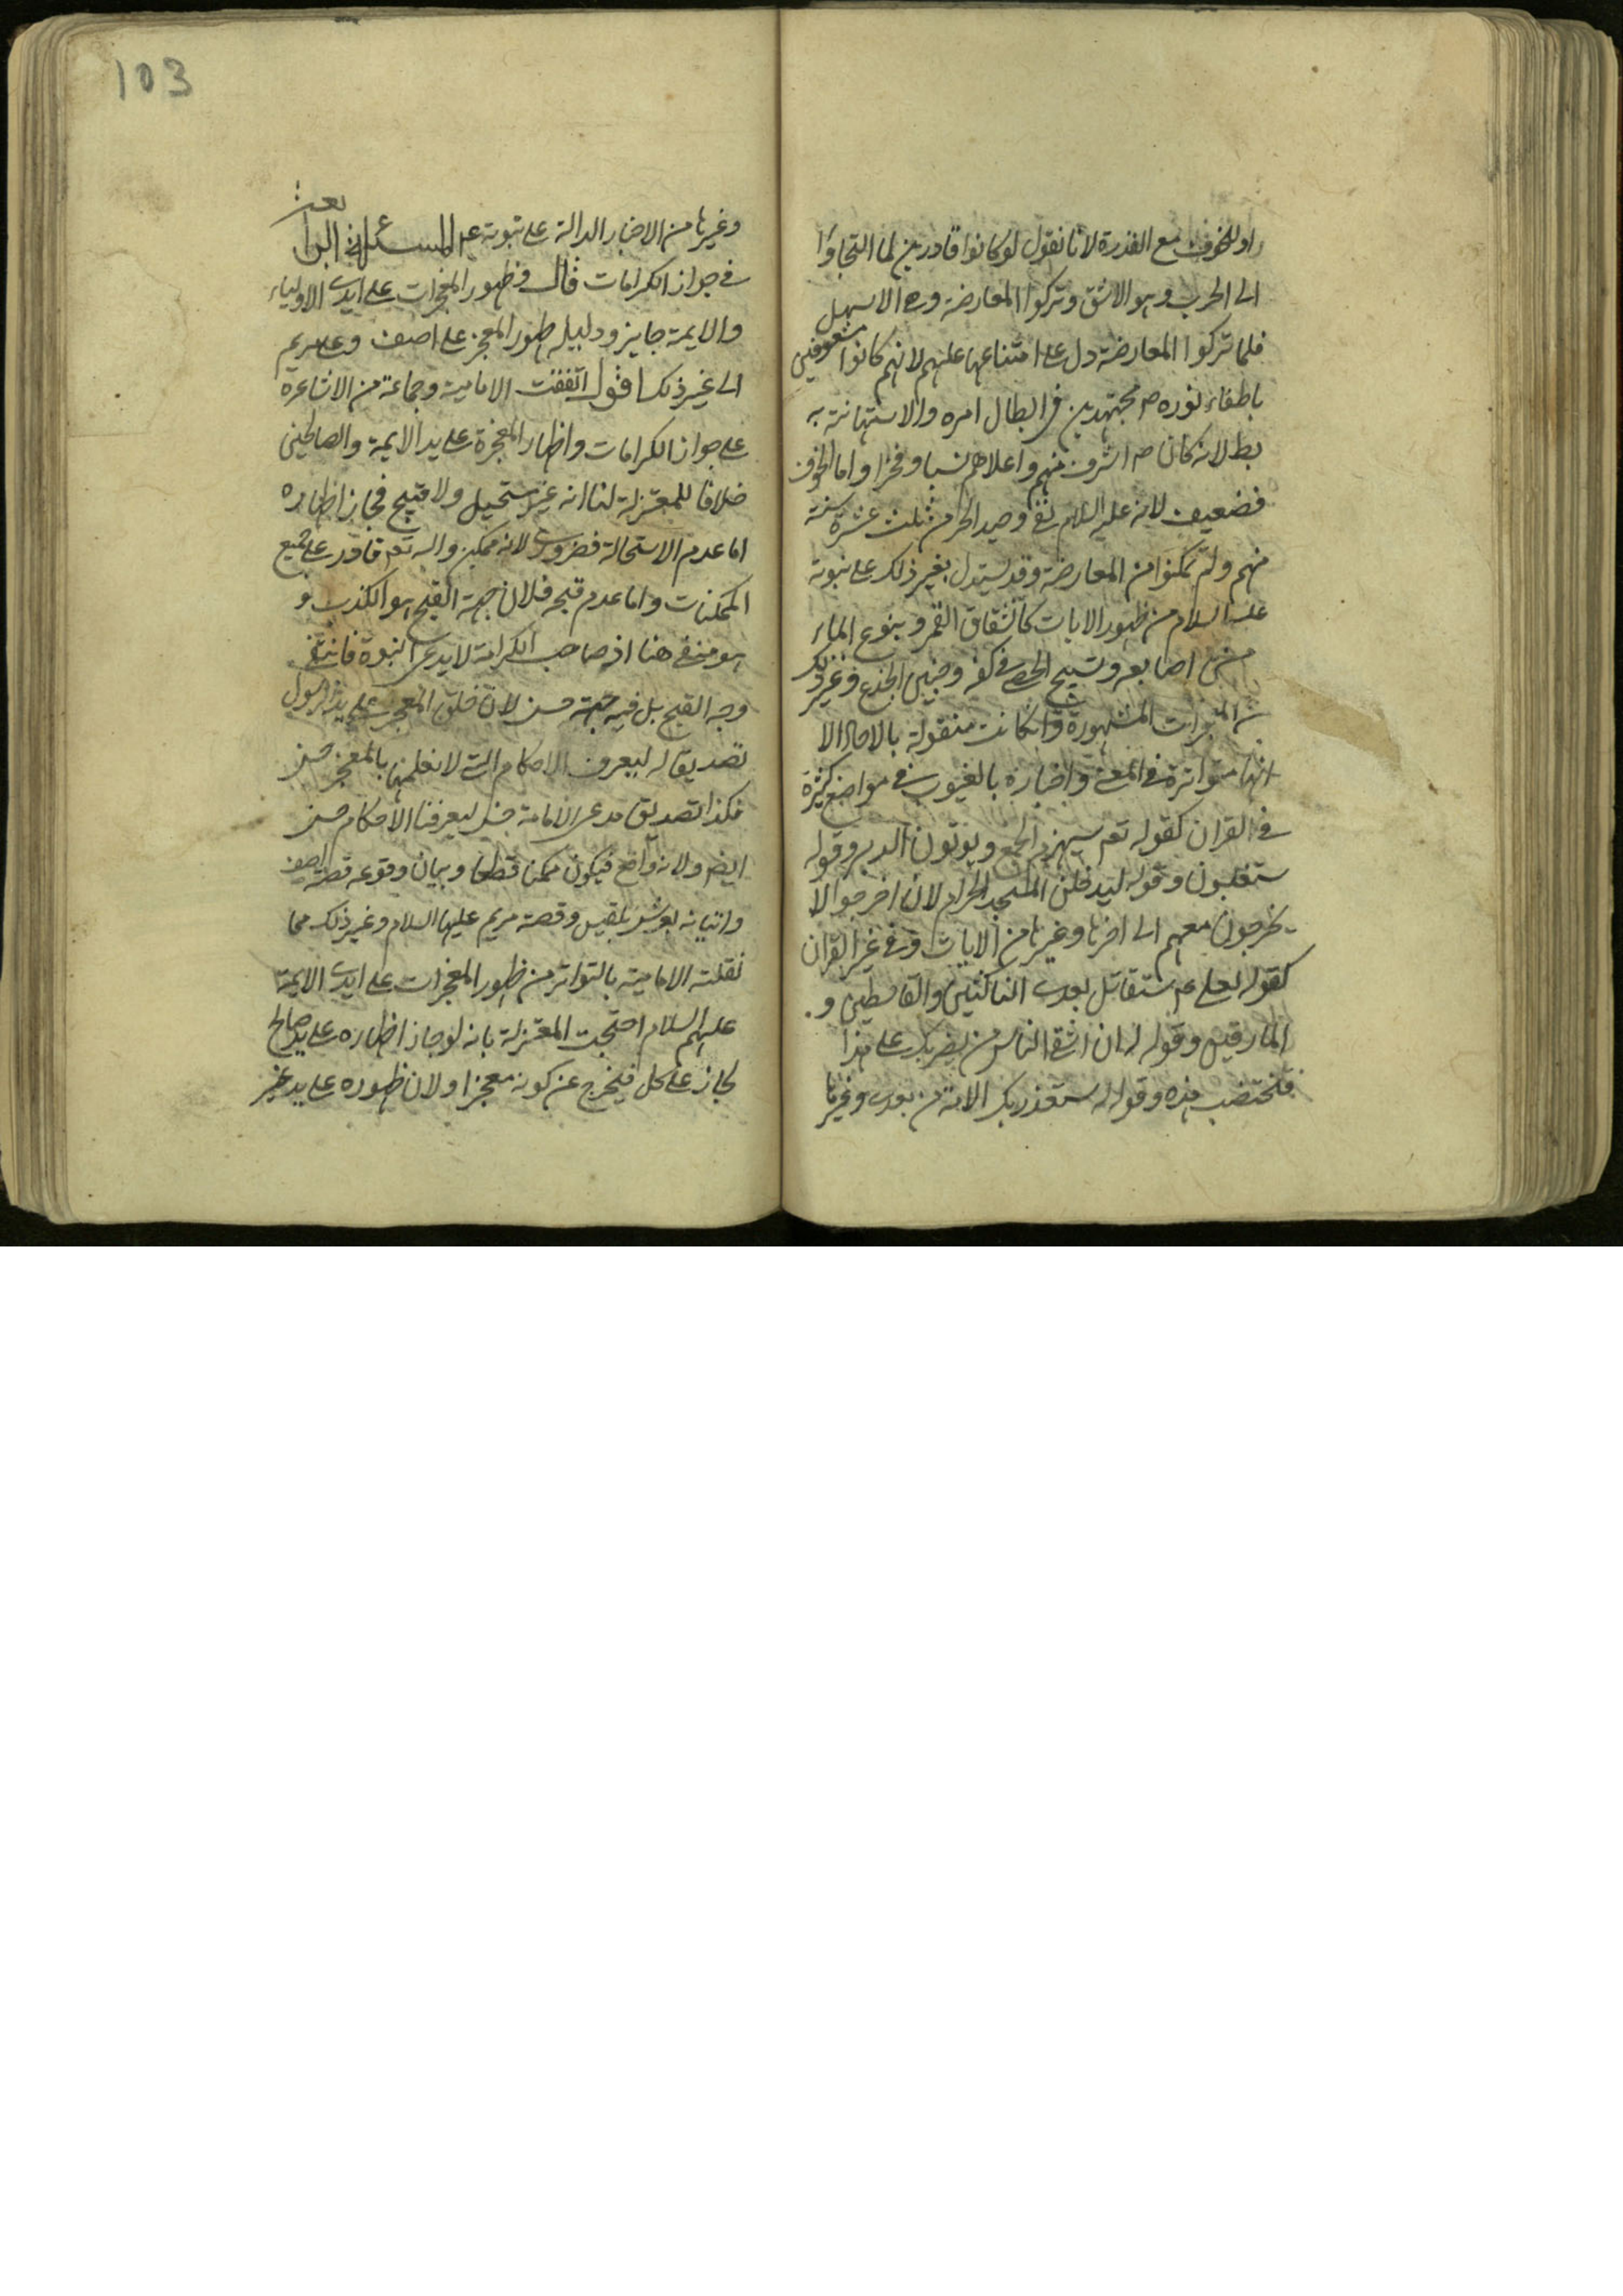 او للخوف مع القدرة لانا نقول لو كانوا قادرين لما التجاوا
الى الحرب وهو الاشق وتركوا المعارضة وهى الاسهل
فلما تركوا المعارضة دل على امتناعها عليهم لانهم كانوا مشعوفين
باطفاء نوره ص مجتهدين فى ابطال امره والاستهانة به
بط لانه كان ص اشرف منهم واعلاهم نسبا وفخرا واما الخوف
فضعيف لانه عليه السلام بقى وحيدا خرم ثلث عشرة سنة
منهم ولم تمكنوا من المعارضة وقد يستدل بغير ذلك على نبوته
عليه السلام من ظهور الايات كانشقاق القمر و ينوع الماء
من اصابعه وتسبيح الحصى فى كفه وحنين الجذع وغير ذلك
من المعجزات المشهورة وان كانت منقولة بالاحاد الا
انها متواترة فى المعنى واخباره بالغيوب فى مواضع كثيرة
فى القران كقوله تع سيهزم الجمع ويولون الدبر وقوله
ستغلبون وقوله لتدخلن المسجد الحرام لان اخرجوا لا
يخرجون معهم الى اخرها وغيرها من الايات وفى غير القران
كقوله لعلى ع ستقاتل بعدى الناكثين والقاسطين و
المارقين وقوله له ان اشقى الناس من يضربك على هذا
فتختضب هذه وقوله له ستغدر بك الامة من بعدى وغيرها
103
وغيرها من الاخبار الدالة على نبوته ع المسئلة الرابعة
فى جواز الكرامات قال وظهور المعجزات على ايدى الاولياء
والايمة جايز ودليله ظهور المعجز على اصف وعلى مريم
الى غير ذلك اقول اتفقت الامامية وجماعة من الاشاعرة
على جواز الكرامات واظهار المعجزة على يد الايمة والصالحين
خلافا للمعتزلة لنا انه غير مستحيل ولا قبيح فجاز اظهاره
اما عدم الاستحالة فضرورى لانه ممكن والله تع قادر على جميع
الممكنات واما عدم قبحه فلان جهة القبح هو الكذب و
هو منفى هنا اذ صاحب الكرامة لا يدعى النبوة فانتفى
وجه القبح بل فيه جهة حسن لان خلق المعجز على يد الرسول
تصديقا له ليعرف الاحكام التى لا نعلمها بالمعجز حسن
فكذا تصديق مدعى الامامة ليعرفنا الاحكام حسن
ايضا ولانه واقع فيكون ممكنا قطعا وبيان وقوعه قصة اصف
واتيانه بعرش بلقيس وقصة مريم عليها السلام وغير ذلك مما
نقلته الامامية بالتواتر من ظهور المعجزات على ايدى الايمة
عليهم السلام احتجت المعتزلة بانه لو جاز اظهاره على يد صالح
لجاز على كل فيخرج عن كونه معجزا ولان ظهوره على يد غير